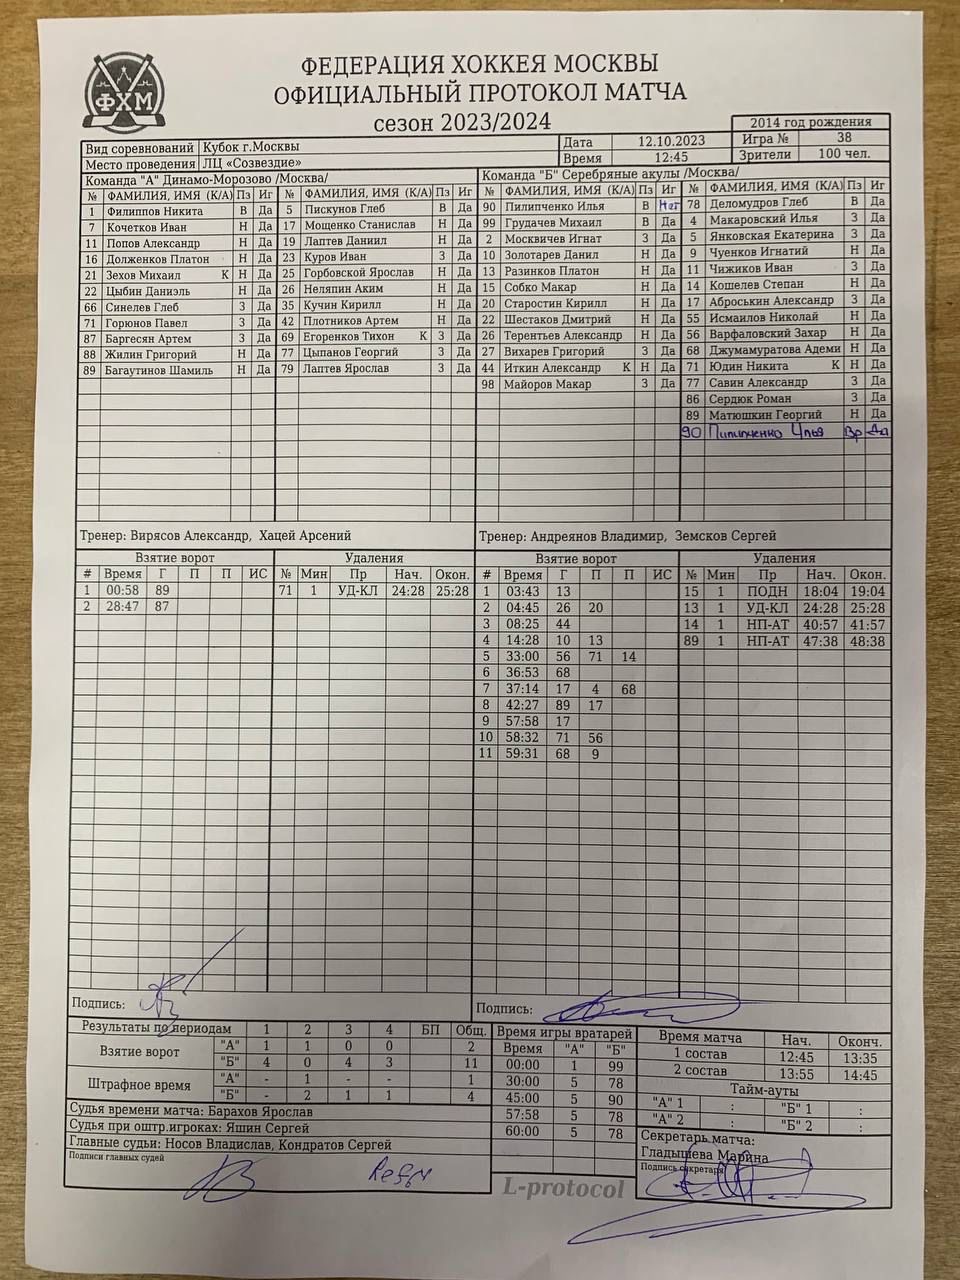 ФХМ
ФЕДЕРАЦИЯ ХОККЕЯ МОСКВЫ
ОФИЦИАЛЬНЫЙ ПРОТОКОЛ МАТЧА
сезон 2023/2024
2014 год рождения
Вид соревнований Кубок г.Москвы Дата 12.10.2023 Игра № 38
Место проведения ЛЦ «Созвездие» Время 12:45 Зрители 100 чел.
Команда "А" Динамо-Морозово /Москва/
№ ФАМИЛИЯ, ИМЯ (К/А) Пз Иг № ФАМИЛИЯ, ИМЯ (К/А) Пз Иг
1 Филиппов Никита В Да 5 Пискунов Глеб В Да
7 Кочетков Иван Н Да 17 Мощенко Станислав Н Да
11 Попов Александр Н Да 19 Лаптев Даниил Н Да
16 Долженков Платон Н Да 23 Куров Иван З Да
21 Зехов Михаил К Н Да 25 Горбовской Ярослав Н Да
22 Цыбин Даниэль Н Да 26 Неляпин Аким Н Да
66 Синелев Глеб З Да 35 Кучин Кирилл Н Да
71 Горюнов Павел З Да 42 Плотников Артем Н Да
87 Баргесян Артем З Да 69 Егоренков Тихон К З Да
88 Жилин Григорий Н Да 77 Цыпанов Георгий З Да
89 Багаутинов Шамиль Н Да 79 Лаптев Ярослав З Да
Тренер: Вирясов Александр, Хацей Арсений
Команда "Б" Серебряные акулы /Москва/
№ ФАМИЛИЯ, ИМЯ (К/А) Пз Иг № ФАМИЛИЯ, ИМЯ (К/А) Пз Иг
90 Пилипченко Илья В Нет 78 Деломудров Глеб В Да
99 Грудачев Михаил В Да 4 Макаровский Илья З Да
2 Москвичев Игнат З Да 5 Янковская Екатерина З Да
10 Золотарев Данил Н Да 9 Чуенков Игнатий Н Да
13 Разинков Платон Н Да 11 Чижиков Иван З Да
15 Собко Макар Н Да 14 Кошелев Степан Н Да
20 Старостин Кирилл Н Да 17 Аброськин Александр З Да
22 Шестаков Дмитрий Н Да 55 Исмаилов Николай Н Да
26 Терентьев Александр Н Да 56 Варфаловский Захар Н Да
27 Вихарев Григорий З Да 68 Джумамуратова Адеми Н Да
44 Иткин Александр К Н Да 71 Юдин Никита К Н Да
98 Майоров Макар З Да 77 Савин Александр З Да
86 Сердюк Роман З Да
89 Матюшкин Георгий Н Да
90 Пилипченко Илья Вр Да
Тренер: Андреянов Владимир, Земсков Сергей
Взятие ворот Удаления
# Время Г П П ИС № Мин Пр Нач. Окон.
1 00:58 89 71 1 УД-КЛ 24:28 25:28
2 28:47 87
Подпись:
Взятие ворот Удаления
# Время Г П П ИС № Мин Пр Нач. Окон.
1 03:43 13 15 1 ПОДН 18:04 19:04
2 04:45 26 20 13 1 УД-КЛ 24:28 25:28
3 08:25 44 14 1 НП-АТ 40:57 41:57
4 14:28 10 13 89 1 НП-АТ 47:38 48:38
5 33:00 56 71 14
6 36:53 68
7 37:14 17 4 68
8 42:27 89 17
9 57:58 17
10 58:32 71 56
11 59:31 68 9
Подпись:
Результаты по периодам 1 2 3 4 БП Общ.
Взятие ворот "А" 1 1 0 0 2
"Б" 4 0 4 3 11
Штрафное время "А" - 1 - - 1
"Б" - 2 1 1 4
Судья времени матча: Барахов Ярослав
Судья при оштр.игроках: Яшин Сергей
Главные судьи: Носов Владислав, Кондратов Сергей
Подписи главных судей
Время игры вратарей
Время "А" "Б"
00:00 1 99
30:00 5 78
45:00 5 90
57:58 5 78
60:00 5 78
L-protocol
Время матча Нач. Оконч.
1 состав 12:45 13:35
2 состав 13:55 14:45
Тайм-ауты
"А" 1 : "Б" 1 :
"А" 2 : "Б" 2 :
Секретарь матча:
Гладышева Марина
Подпись секретаря